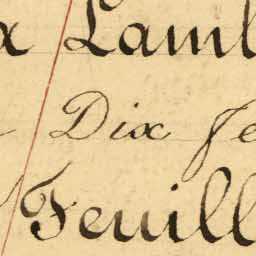 x Lamb
Dix fe
Feuill